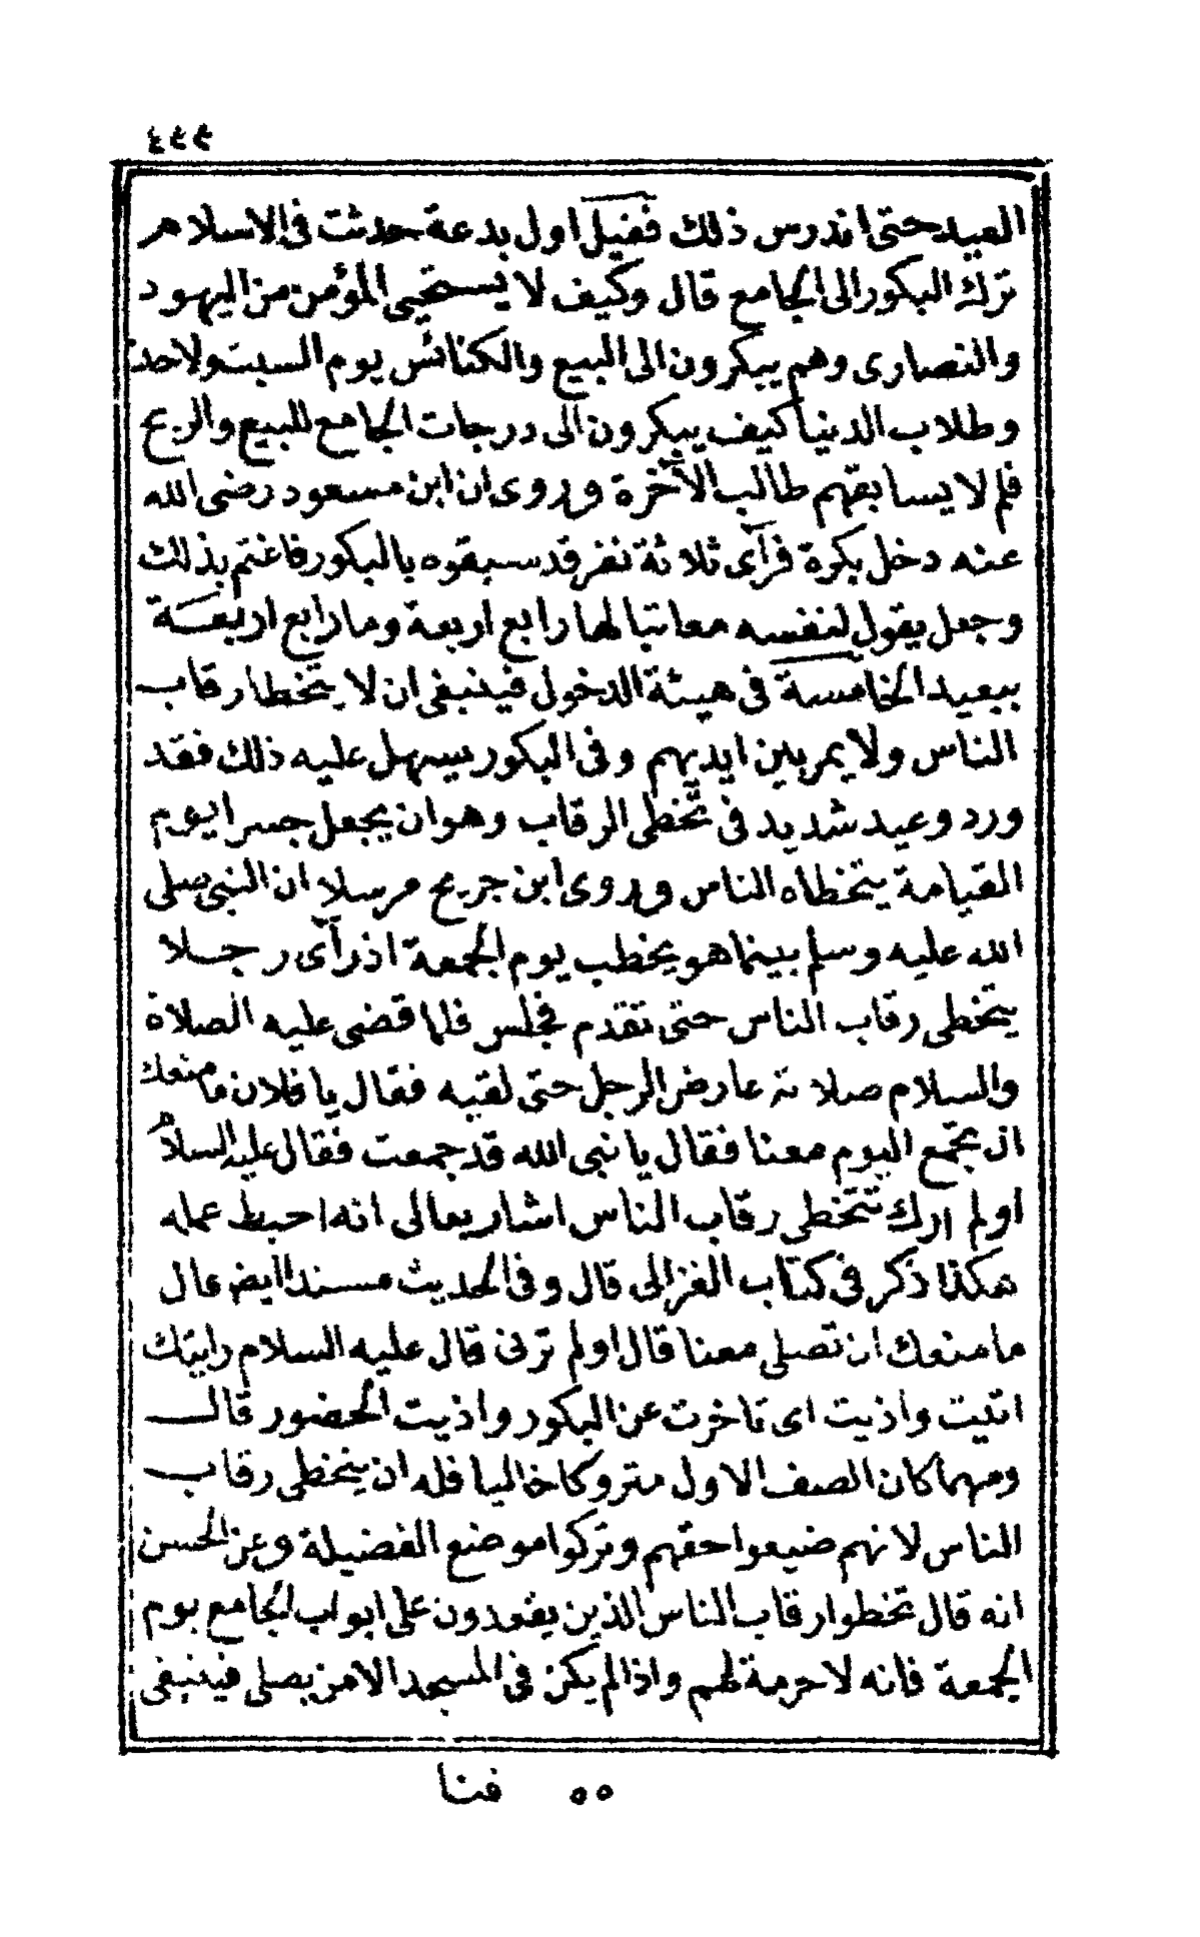 ٤٤٩
العيد حتى اندرس ذلك فقيل اول بدعة حدثت فى الاسلام
ترك البكور الى الجامع قال وكيف لا يستحيى المؤمن من اليهود
والنصارى وهم يبكرون الى البيع والكنائس يوم السبت ولاحد
وطلاب الدنيا كيف يبكرون الى درجات الجامع للبيع والربح
فلم لا يسابقهم طالب الآخرة وروى ان ابن مسعود رضى الله
عنه دخل بكرة فرآى ثلاثة نفر قد سبقوه بالبكور فاغتم بذلك
وجعل يقول لنفسه معاتبا لها رابع اربعة وما رابع اربعة
ببعيد الخامسة فى هيئة الدخول فينبغى ان لا يتخطا رقاب
الناس ولا يمر بين ايديهم وفى البكور يسهل عليه ذلك فقد
ورد وعيد شديد فى تخطى الرقاب وهو ان يجعل جسرا يوم
القيامة يتخطاه الناس وروى ابن جريج مرسلا ان النبى صلى
الله عليه وسلم بينما هو يخطب يوم الجمعة اذ رآى رجلا
يتخطى رقاب الناس حتى تقدم فجلس فلما قضى عليه الصلاة
والسلام صلاته عارض الرجل حتى لقيه فقال يا فلان ما منعك
ان تجمع اليوم معنا فقال يا نبى الله قد جمعت فقال عليه السلام
اولم ارك تتخطى رقاب الناس اشار بعالى انه احبط عمله
هكذا ذكر فى كتاب الغزالى قال وفى الحديث مسندا ايضا قال
ما منعك ان تصلى معنا قال اولم ترنى قال عليه السلام رايتك
اتيت واذيت اى تاخرت عن البكور واذيت الحضور قال
ومهما كان الصف الاول متروكا خاليا فله ان يتخطى رقاب
الناس لانهم ضيعوا حقهم وتركوا موضع الفضيلة وعن الحسن
انه قال تخطوا رقاب الناس الذين يقعدون على ابواب الجامع يوم
الجمعة فانه لا حرمة لهم واذا لم يكن فى المسجد الا من يصلى فينبغى
٥٥ فنا